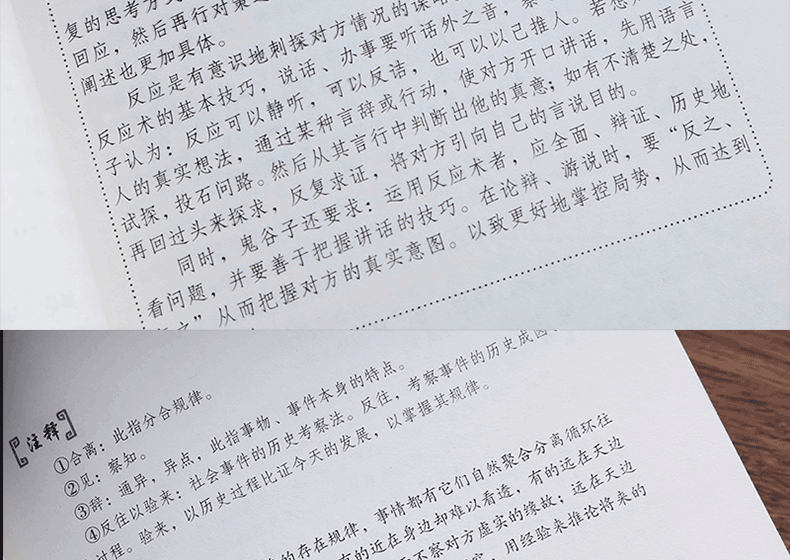 复的思考方
回应，然后再行对策
阐述也更加具体。
反应是有意识地刺探对方情况的谋略
反应术的基本技巧，说话、办事要听话外之音，察
子认为：反应可以静听，可以反诘，也可以以己推人。若想
人的真实想法，通过某种言辞或行动，使对方开口讲话，先用语言
试探，投石问路。然后从其言行中判断出他的真意；如有不清楚之处，
再回过头来探求，反复求证，将对方引向自己的言说目的。
同时，鬼谷子还要求：运用反应术者，应全面、辩证、历史地
看问题，并要善于把握讲话的技巧。在论辩、游说时，要“反之、
”，从而把握对方的真实意图。以致更好地掌控局势，从而达到
注释
①合离：此指分合规律。
②见：察知。
③辞：通异，异点，此指事物、事件本身的特点。
④反往以验来：社会事件的历史考察法。反往，考察事件的历史成因
过程。验来，以历史过程比证今天的发展，以掌握其规律。
的存在规律，事情都有它们自然聚合分离循环往
有的近在身边却难以看透，有的远在天边
不察对方虚实的缘故；远在天边
用经验来推论将来的